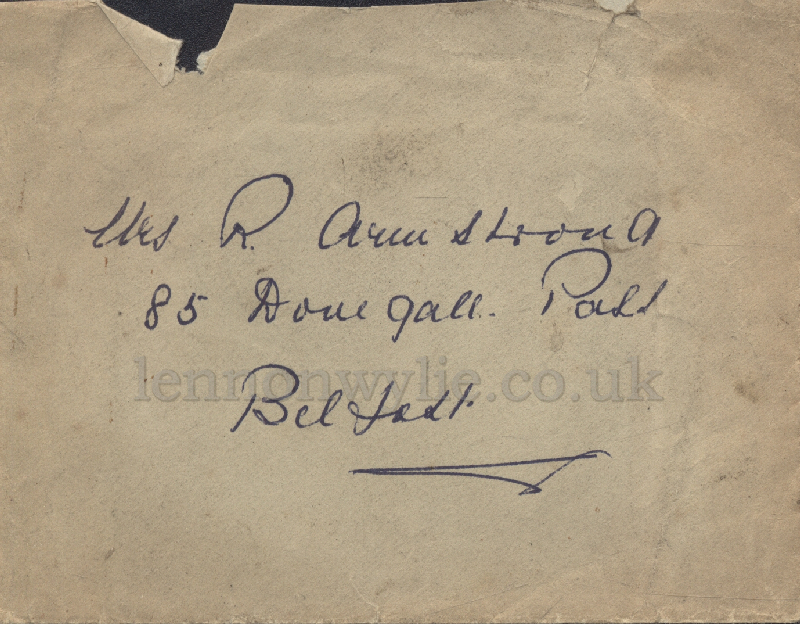 Mrs R. Armstrong
85 Donegall. Pass
lennonwylie.co.uk
Belfast